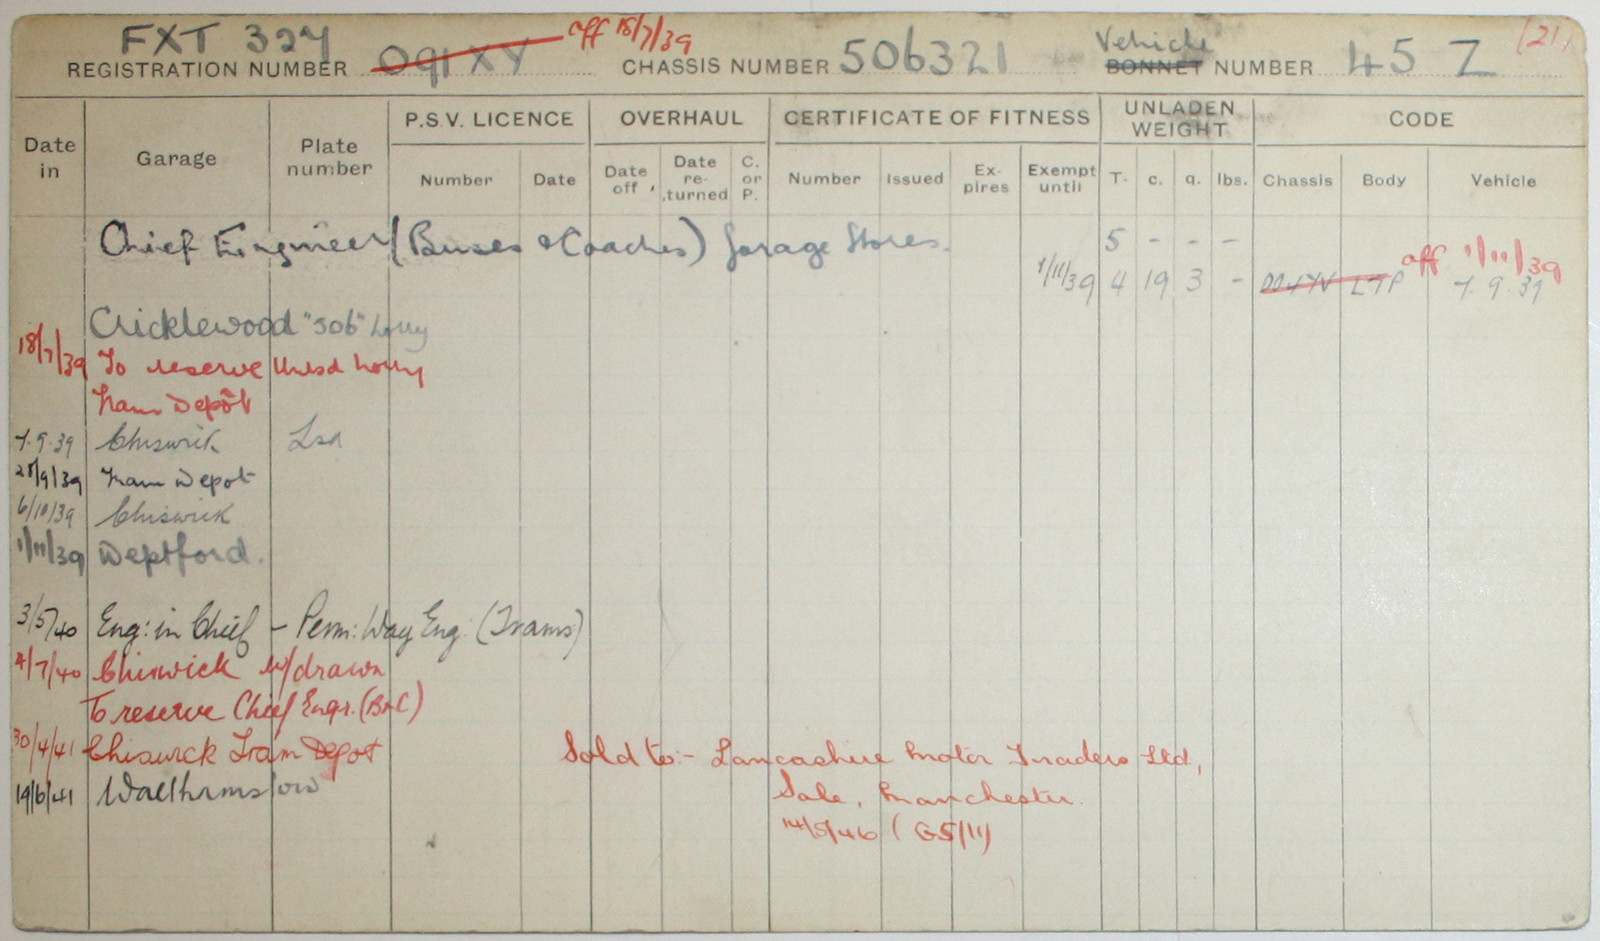 FXT 327 off 18/7/39 Vehicle (21)
REGISTRATION NUMBER 091 XY CHASSIS NUMBER 506321 BONNET NUMBER 45 Z
Date in Garage Plate number P.S.V. LICENCE OVERHAUL CERTIFICATE OF FITNESS UNLADEN WEIGHT CODE
Number Date Date off Date re-turned C. or P. Number Issued Ex-pires Exempt until T. c. q. lbs. Chassis Body Vehicle
Chief Engineer (Buses & Coaches) Garage Stores. 5 - - -
1/11/39 4 19 3 - LTP off 1/11/39
7.9.39
Cricklewood "506" Lorry
18/7/39 To reserve Lorry
Tram Depôt
7.9.39 Chiswick
28/9/39 Tram Depot
6/10/39 Chiswick
1/11/39 Deptford.
3/5/40 Eng: in Chief - Perm: Way Eng: (Trams)
4/7/40 Chiswick w/drawn
To reserve Chief Engr. (B&C)
30/4/41 Chiswick Tram Depot Sold to:- Lancashire Motor Traders Ltd,
19/6/41 Walthamstow Sale, Manchester.
14/5/46 (G5/11)